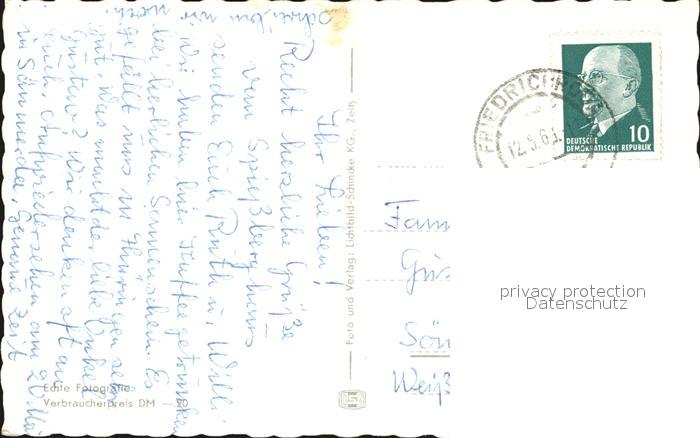 Ihr Lieben!
Recht herzliche Grüße
vom Spießberghaus
senden Euch Ruth u. Willi
Wir haben hier Kaffee getrunken
bei herrlichen Sonnenschein. Es
gefällt uns in Thüringen sehr
gut. Was macht der liebe Onkel
Gustav? Wir denken oft an
Euch. Auf Wiedersehen am 20 Mai
in Sömmerda. Genaue Zeit
schreiben wir
noch.
Foto und Verlag: Lichtbild-Schincke KG., Zeitz
Echte Fotografie
Verbraucherpreis DM —.20
FRIEDRICHRO
12.5.63
10
DEUTSCHE
DEMOKRATISCHE REPUBLIK
Fam
Gus
Söm
Weiß
privacy protection
Datenschutz